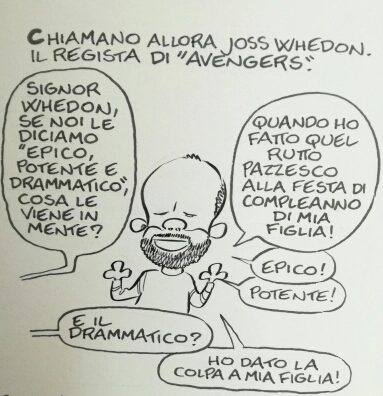 CHIAMANO ALLORA JOSS WHEDON.
IL REGISTA DI "AVENGERS".
SIGNOR
WHEDON,
SE NOI LE
DICIAMO
"EPICO,
POTENTE E
DRAMMATICO",
COSA LE
VIENE IN
MENTE?
QUANDO HO
FATTO QUEL
RUTTO
PAZZESCO
ALLA FESTA DI
COMPLEANNO
DI MIA
FIGLIA!
EPICO!
POTENTE!
E IL
DRAMMATICO?
HO DATO LA
COLPA A MIA FIGLIA!